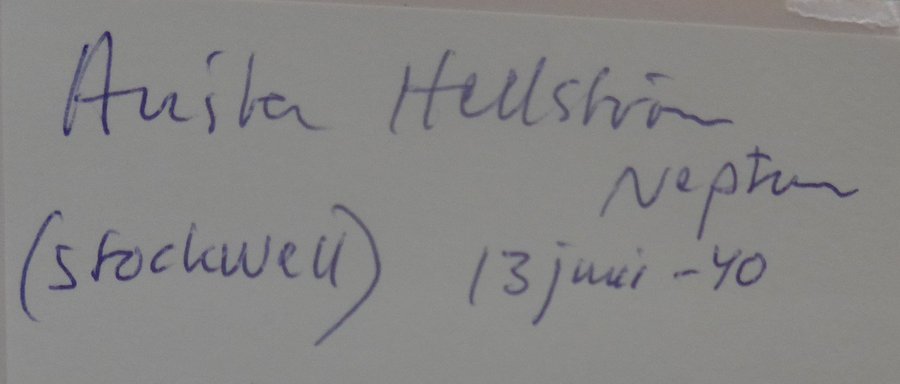 Anita Hellström
Neptun
(Stockwell) 13 juni -40